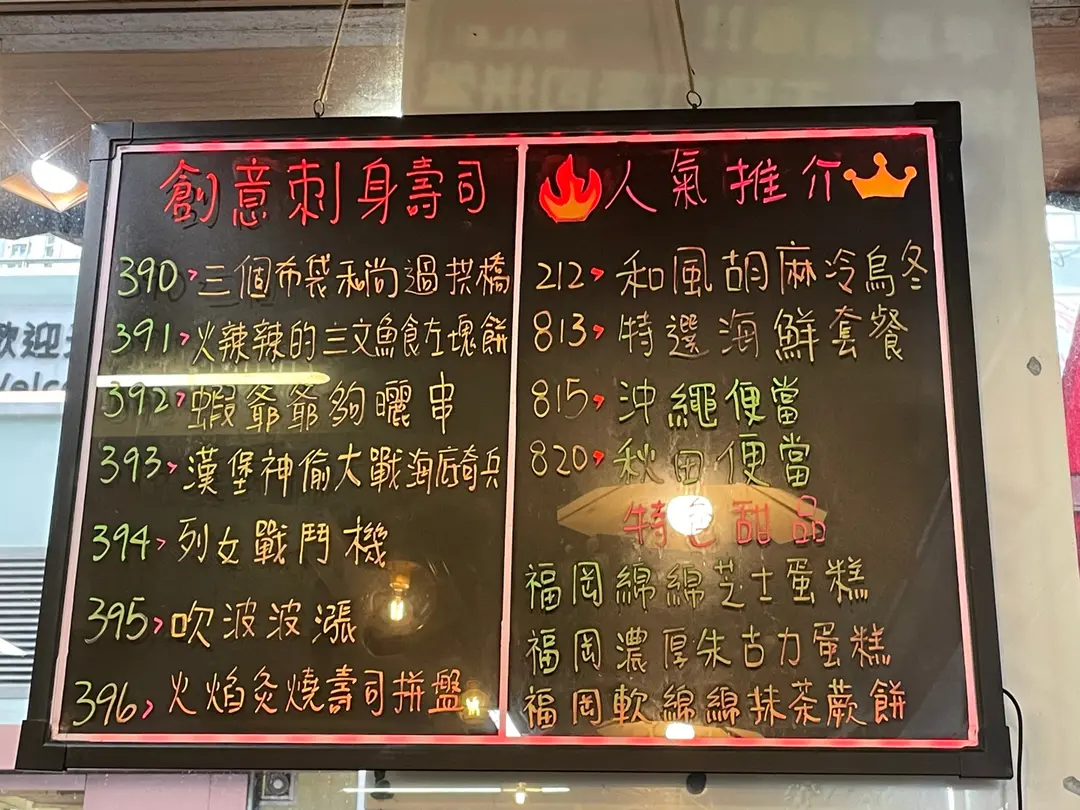 創意刺身壽司
390>三個布袋和尚過拱橋
391>火辣辣的三文魚食左塊餅
392>蝦爺爺夠曬串
393>漢堡神偷大戰海底奇兵
394>列女戰鬥機
395>吹波波漲
396>火焰灸燒壽司拼盤
人氣推介
212>和風胡麻冷烏冬
813>特選海鮮套餐
815>沖繩便當
820>秋田便當
特色甜品
福岡綿綿芝士蛋糕
福岡濃厚朱古力蛋糕
福岡軟綿綿抹茶蕨餅
歡迎